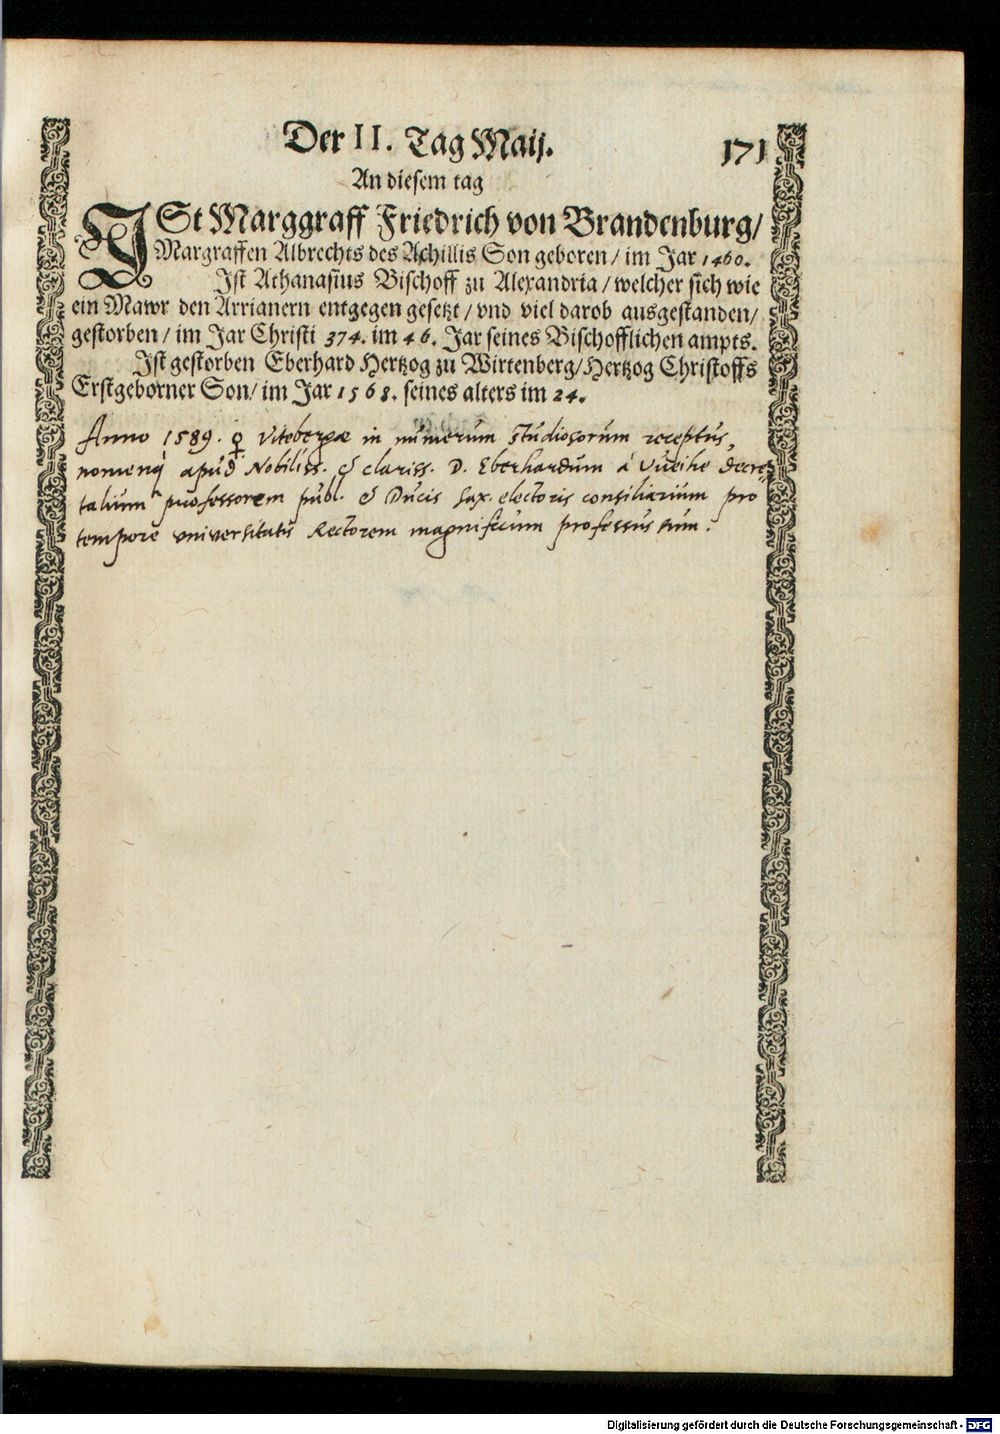 Der II. Tag Maij.
171
An diesem tag
ISt Marggraff Friedrich von Brandenburg/
Margraffen Albrechts des Achillis Son geboren/ im Jar 1460.
Ist Athanasius Bischoff zu Alexandria/ welcher sich wie
ein Mawr den Arrianern entgegen gesetzt/ vnd viel darob ausgestanden/
gestorben/ im Jar Christi 374. im 46. Jar seines Bischofflichen ampts.
Ist gestorben Eberhard Hertzog zu Wirtenberg/ Hertzog Christoffs
Erstgeborner Son/ im Jar 1568. seines alters im 24.
Anno 1589. ♀ Vitebergae in numerum studiosorum receptus,
nomenq́ apud Nobiliss. & clariss. D. Eberhardum à Vueihe decre-
talium professorem publ. & Ducis Sax. electoris consiliarium pro
tempore vniversitatis Rectorem magnificum professus sum.
Digitalisierung gefördert durch die Deutsche Forschungsgemeinschaft - DFG